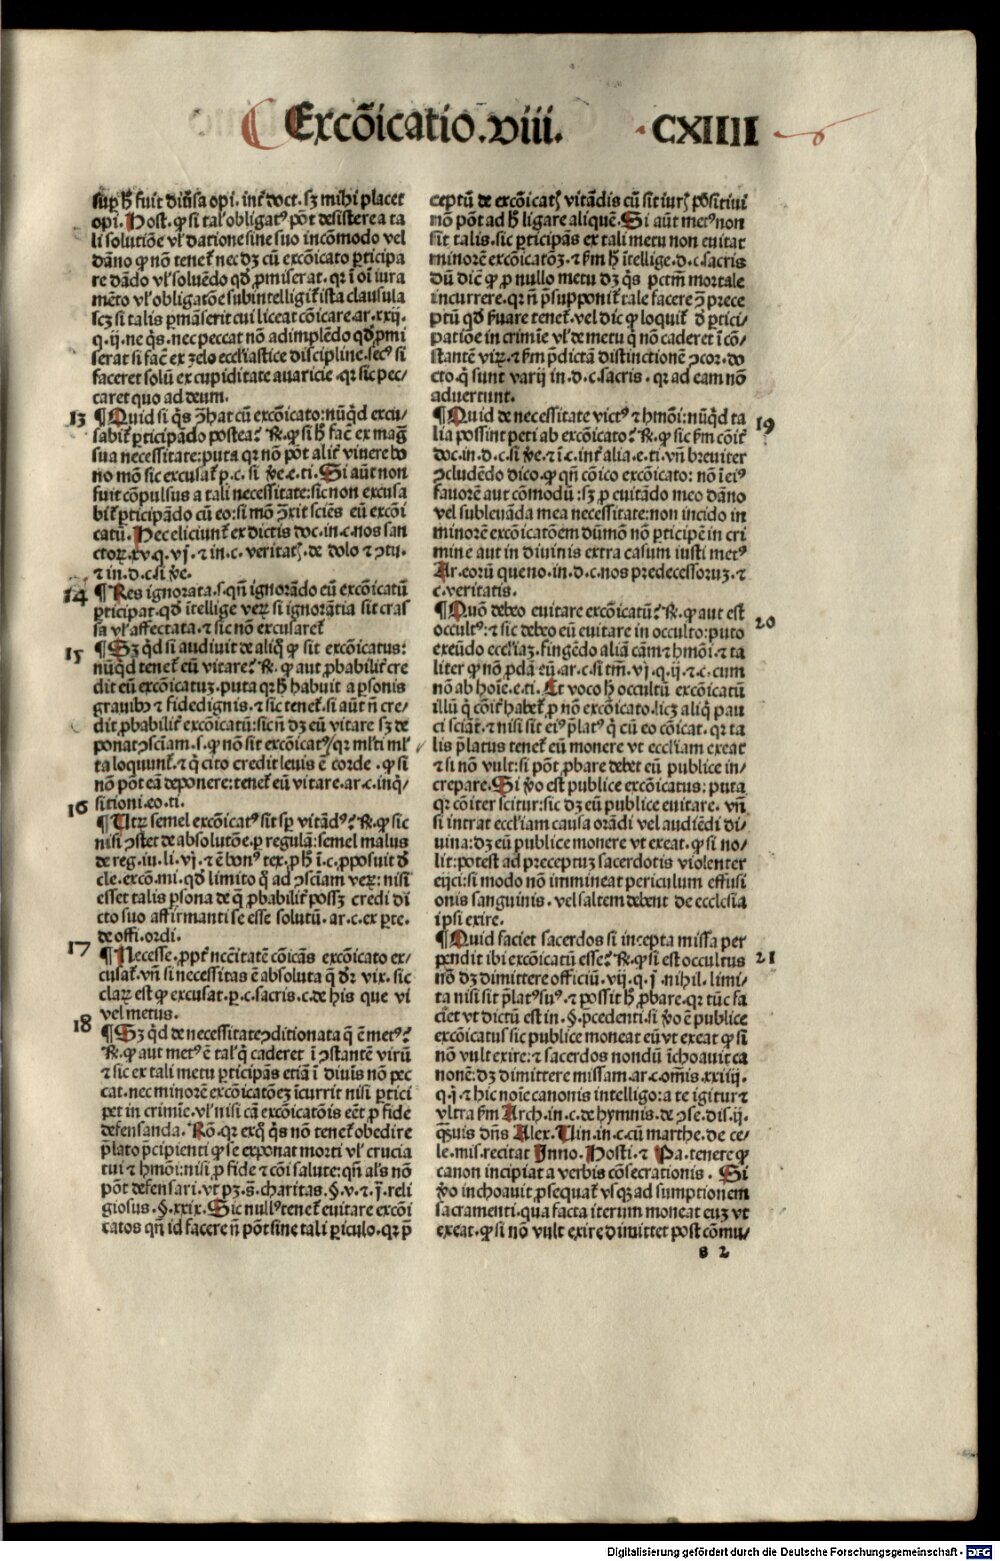 Excōicatio.viii.
CXIIII
sup h̄ fuit diũsa opi. inť doct. sꝫ mihi placet
opi. Host. ꝙ si tal' obligatꝰ pōt desistere a ta
li solutiōe vl' datione sine suo incōmodo vel
dāno ꝙ nō tenet̄ nec dꝫ cū excōicato ꝑticipa
re dādo vl' soluēdo qd̄ ꝓmiserat. qꝛ ī oī iura
mēto vl' obligatōe subintelligit̄ ista clausula
scꝫ si talis ꝑmāserit cui liceat cōicare. ar. xxij.
q. ij. ne qs. nec peccat nō adimplēdo qd̄ ꝓmi
serat si facē ex zelo ecclīastice discipline. secꝰ si
faceret solū ex cupiditate auaricie. qꝛ sic pec/
caret quo ad deum.
13 ¶ Quid si qs ꝯ̄hat cū excōicato: nūqd excu/
sabit̄ ꝑticipādo postea? R̄. ꝙ si h̄ facē ex maḡ
sua necessitate: puta qꝛ nō pōt aliť viuere bo
no mō sic excusat̄ ꝑ. c. si v̄e. e. ti. Si aūt non
fuit cōpulsus a tali necessitate: sic non excusa
bit̄ ꝑticipādo cū eo: si mō ꝯ̄xit sciēs eū excōi
catū. Hec eliciunt̄ ex dictis doc. in. c. nos san
ctoꝝ. xv. q. vj. ⁊ in. c. veritatꝭ. de dolo ⁊ ꝯtu.
⁊ in. d. c. si v̄e.
14 ¶ Res ignorata. s. qn̄ ignorādo eū excōicatū
ꝑticipat. qd̄ ītellige veꝝ si ignorātia sit cras
sa vl' affectata. ⁊ sic nō excusaret̄
15 ¶ Sꝫ qd si audiuit de aliq̄ ꝙ sit excōicatus:
nūqd tenet̄ eū vitare? R̄. ꝙ aut ꝓbabiliť cre
dit eū excōicatuꝫ. puta qꝛ h̄ habuit a ꝑsonis
grauibꝰ ⁊ fidedignis. ⁊ sic tenet̄. si aūt n̄ cre/
dit ꝓbabiliť excōicatū: sic n̄ dꝫ eū vitare sꝫ de
ponat ꝯsciam. s. ꝙ nō sit excōicatꝰ/ qꝛ ml'ti ml'
ta loquunt̄. ⁊ q̄ cito credit leuis ē corde. ꝙ si
nō pōt eā deponere: tenet̄ eū vitare. ar. c. inq̄/
sitioni. eo. ti.
16 ¶ Utꝝ semel excōicatꝰ sit sp̄ vitādꝰ? R̄. ꝙ sic
nisi ꝯstet de absolutōe. ꝑ regulā: semel malus
de reg. iu. li. vj. ⁊ ē bonꝰ tex. ꝑ h̄ ī. c. ꝓposuit d̄
cle. excō. mi. qd̄ limito q̄ ad ꝯsciam veꝝ: nisi
esset talis ꝑsona de q̄ ꝓbabiliť possꝫ credi di
cto suo affirmanti se esse solutū. ar. c. ex ꝑte.
de offi. ordi.
17 ¶ Necesse. ꝓpť nec̄itatē cōicās excōicato ex/
cusat̄. vn̄ si necessitas ē absoluta q̄ dꝛ vix. sic
claꝝ est ꝙ excusat. ꝑ. c. sacris. c. de his que vi
vel metus.
18 ¶ Sꝫ qd de necessitate ꝯditionata q̄ ē metꝰ?
R̄. ꝙ aut metꝰ ē tal' q̄ caderet ī ꝯstantē virū
⁊ sic ex tali metu ꝑticipās etiā ī diuīs nō pec
cat. nec minorē excōicatōeꝫ īcurrit nisi ꝑtici
pet in crimīe. vl' nisi cā excōicatōis eēt ꝓ fide
defensanda. Rō. qꝛ exq̄ qs nō tenet̄ obedire
p̄lato p̄cipienti ꝙ se exponat morti vl' crucia
tui ⁊ hmōi: nisi ꝓ fide ⁊ cōi salute: qn̄ al's nō
pōt defensari. vt pꝫ. s̄. charitas. §. v. ⁊. j̄. reli
giosus. §. xxix. Sic nullꝰ tenet̄ euitare excōi
catos qn̄ id facere n̄ pōt sine tali ꝑiculo. qꝛ p̄
ceptū de excōicatꝭ vitādis cū sit iurꝭ positiui
nō pōt ad h̄ ligare aliquē. Si aūt metꝰ non
sit talis. sic ꝑticipās ex tali metu non euitat
minorē excōicatōꝫ. ⁊ ẜm h̄ ītellige. d. c. sacris
dū dic̄ ꝙ ꝓ nullo metu dꝫ qs pctm̄ mortale
incurrere. qꝛ n̄ p̄supponit̄ tale facere ꝯ̄ prece
ptū qd̄ ẜuare tenet̄. vel dic ꝙ loquit̄ d̄ ꝑtici/
patiōe in crimīe vl' de metu q̄ nō caderet ī cō/
stantē viꝝ. ⁊ ẜm p̄dictā distinctionē ꝯcor. do
cto. q̄ sunt varij in. d. c. sacris. qꝛ ad eam nō
aduertunt.
19 ¶ Quid de necessitate victꝰ ⁊ hmōi: nūqd ta
lia possint peti ab excōicato? R̄. ꝙ sic ẜm cōiť
doc. in. d. c. si v̄e. ⁊ ī. c. inť alia. e. ti. vn̄ breuiter
ꝯcludēdo dico. ꝙ qn̄ cōico excōicato: nō ī eiꝰ
fauorē aut cōmodū: sꝫ ꝓ euitādo meo dāno
vel subleuāda mea necessitate: non incido in
minorē excōicatōem dūmō nō ꝑticipē in cri
mine aut in diuinis extra casum iusti metꝰ
Ar. eorū que no. in. d. c. nos predecessoruꝫ. ⁊
c. veritatis.
20 ¶ Quō debeo euitare excōicatū? R̄. ꝙ aut est
occultꝰ: ⁊ sic debeo eū euitare in occulto: puto
exeūdo eccl'iaꝫ. fingēdo aliā cām ⁊ hmōi. ⁊ ta
liter ꝙ nō ꝓdā eū. ar. c. si tm̄. vj. q. ij. ⁊. c. cum
nō ab hoīe. e. ti. Et voco h̄ occultū excōicatū
illū q̄ cōiť habet̄ ꝓ nō excōicato. licꝫ aliq̄ pau
ci sciāt. ⁊ nisi sit eiꝰ p̄latꝰ q̄ cū eo cōicat. qꝛ ta
lis p̄latus tenet̄ eū monere vt eccl'iam exeat
⁊ si nō vult: si pōt ꝓbare debet eū publice in/
crepare. Si v̄o est publice excōicatus: puta
qꝛ cōiter scitur: sic dꝫ eū publice euitare. vn̄
si intrat eccl'iam causa orādi vel audiēdi di/
uina: dꝫ eū publice monere vt exeat. ꝙ si no/
lit: potest ad preceptuꝫ sacerdotis violenter
eijci: si modo nō immineat periculum effusi
onis sanguinis. vel saltem debent de ecclesia
ipsi exire.
21 ¶ Quid faciet sacerdos si incepta missa per
pendit ibi excōicatū esse? R̄. ꝙ si est occultus
nō dꝫ dimittere officiū. vij. q. j̄. nihil. limi/
ta nisi sit p̄latꝰ suꝰ. ⁊ possit h̄ ꝓbare. qꝛ tūc fa
ciet vt dictū est in. §. p̄cedenti. si v̄o ē publice
excōicatus sic publice moneat eū vt exeat ꝙ si
nō vult exire: ⁊ sacerdos nondū īchoauit ca
nonē: dꝫ dimittere missam. ar. c. om̄is. xxiiij.
q. j̄. ⁊ hic noīe canonis intelligo: a te igitur ⁊
vltra ẜm Arch. in. c. de hymnis. de ꝯse. dis. ij.
q̄uis dn̄s Alex. Uin. in. c. cū marthe. de ce/
le. mis. recitat Inno. Hosti. ⁊ Pa. tenere ꝙ
canon incipiat a verbis cōsecrationis. Si
v̄o inchoauit ꝓsequat̄ vsqꝫ ad sumptionem
sacramenti. qua facta iterum moneat euꝫ vt
exeat. ꝙ si nō vult exire dimittet post cōmu/
s 2
Digitalisierung gefördert durch die Deutsche Forschungsgemeinschaft - DFG